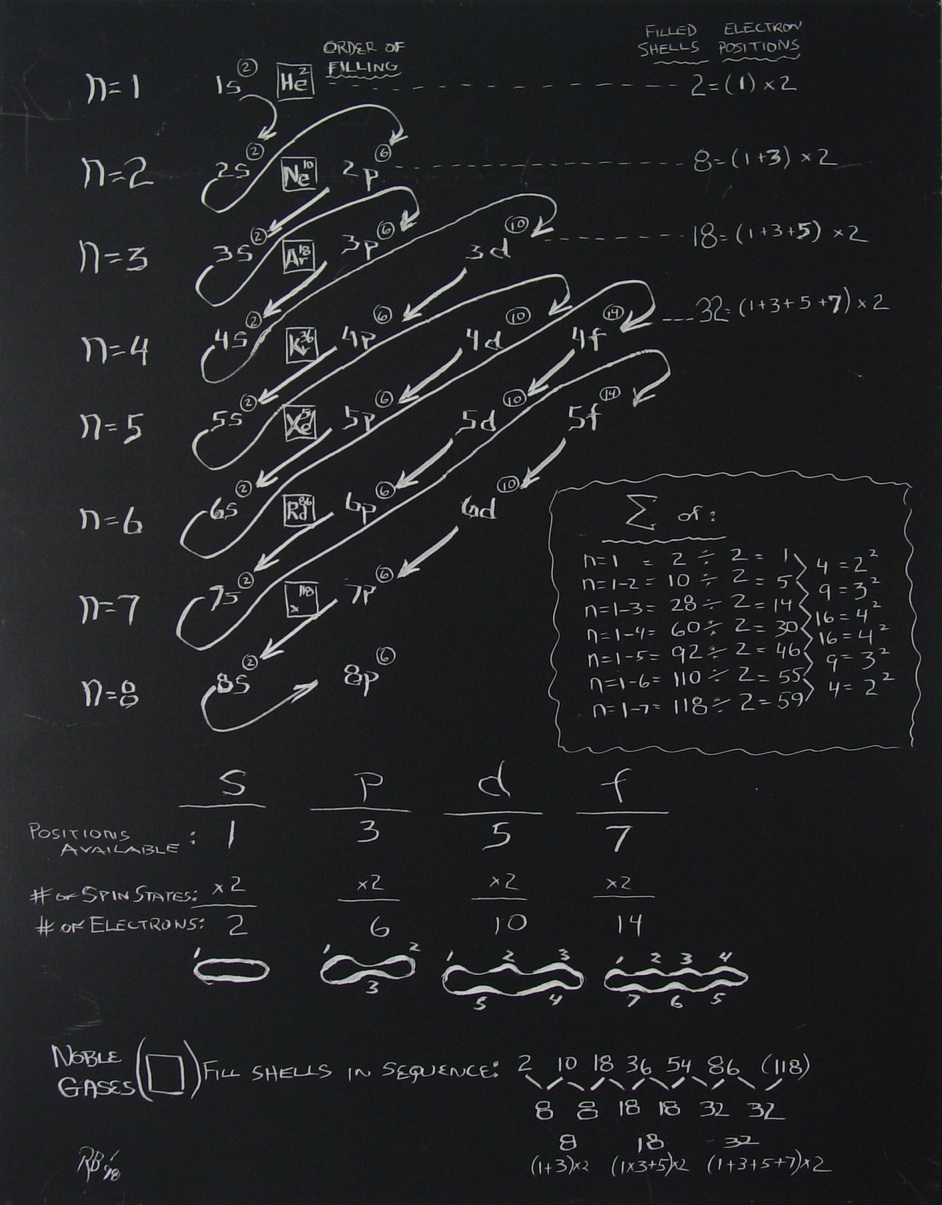 ORDER OF FILLING
FILLED SHELLS ELECTRON POSITIONS
n=1 1s ② He 2 2=(1)×2
n=2 2s ② Ne 10 2p ⑥ 8=(1+3)×2
n=3 3s ② Ar 18 3p ⑥ 3d ⑩ 18=(1+3+5)×2
n=4 4s ② Kr 36 4p ⑥ 4d ⑩ 4f ⑭ 32=(1+3+5+7)×2
n=5 5s ② Xe 54 5p ⑥ 5d ⑩ 5f ⑭
n=6 6s ② 86 6p ⑥ 6d ⑩
n=7 7s ② x 118 7p ⑥
n=8 8s ② 8p ⑥
Σ of:
n=1 = 2 ÷ 2 = 1
n=1-2 = 10 ÷ 2 = 5
n=1-3 = 28 ÷ 2 = 14
n=1-4= 60 ÷ 2 = 30
n=1-5= 92 ÷ 2 = 46
n=1-6= 110 ÷ 2 = 55
n=1-7= 118 ÷ 2 = 59
4=2²
9=3²
16=4²
16=4²
9=3²
4=2²
s p d f
POSITIONS AVAILABLE: 1 3 5 7
# OF SPIN STATES: ×2 ×2 ×2 ×2
# OF ELECTRONS: 2 6 10 14
1 1 2 1 2 3 1 2 3 4
3 5 4 7 6 5
NOBLE GASES (□) FILL SHELLS IN SEQUENCE: 2 10 18 36 54 86 (118)
8 8 18 18 32 32
8 18 32
(1+3)×2 (1×3+5)×2 (1+3+5+7)×2
RB '18